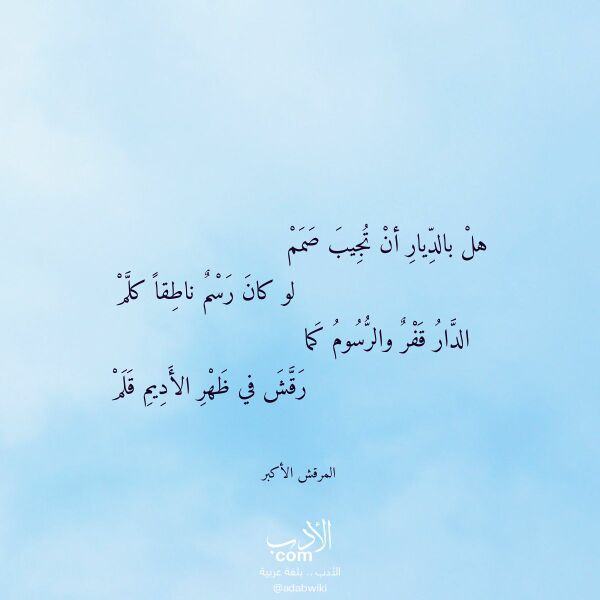 هلْ بالدِّيارِ أنْ تُجِيبَ صَمَمْ
لو كانَ رَسْمٌ ناطِقاً كلَّمْ
الدَّارُ قَفْرٌ والرُّسُومُ كَما
رَقَّشَ في ظَهْرِ الأَدِيمِ قَلَمْ
المرقش الأكبر
الأدب
com
الأدب .. بلغة عربية
@adabwiki